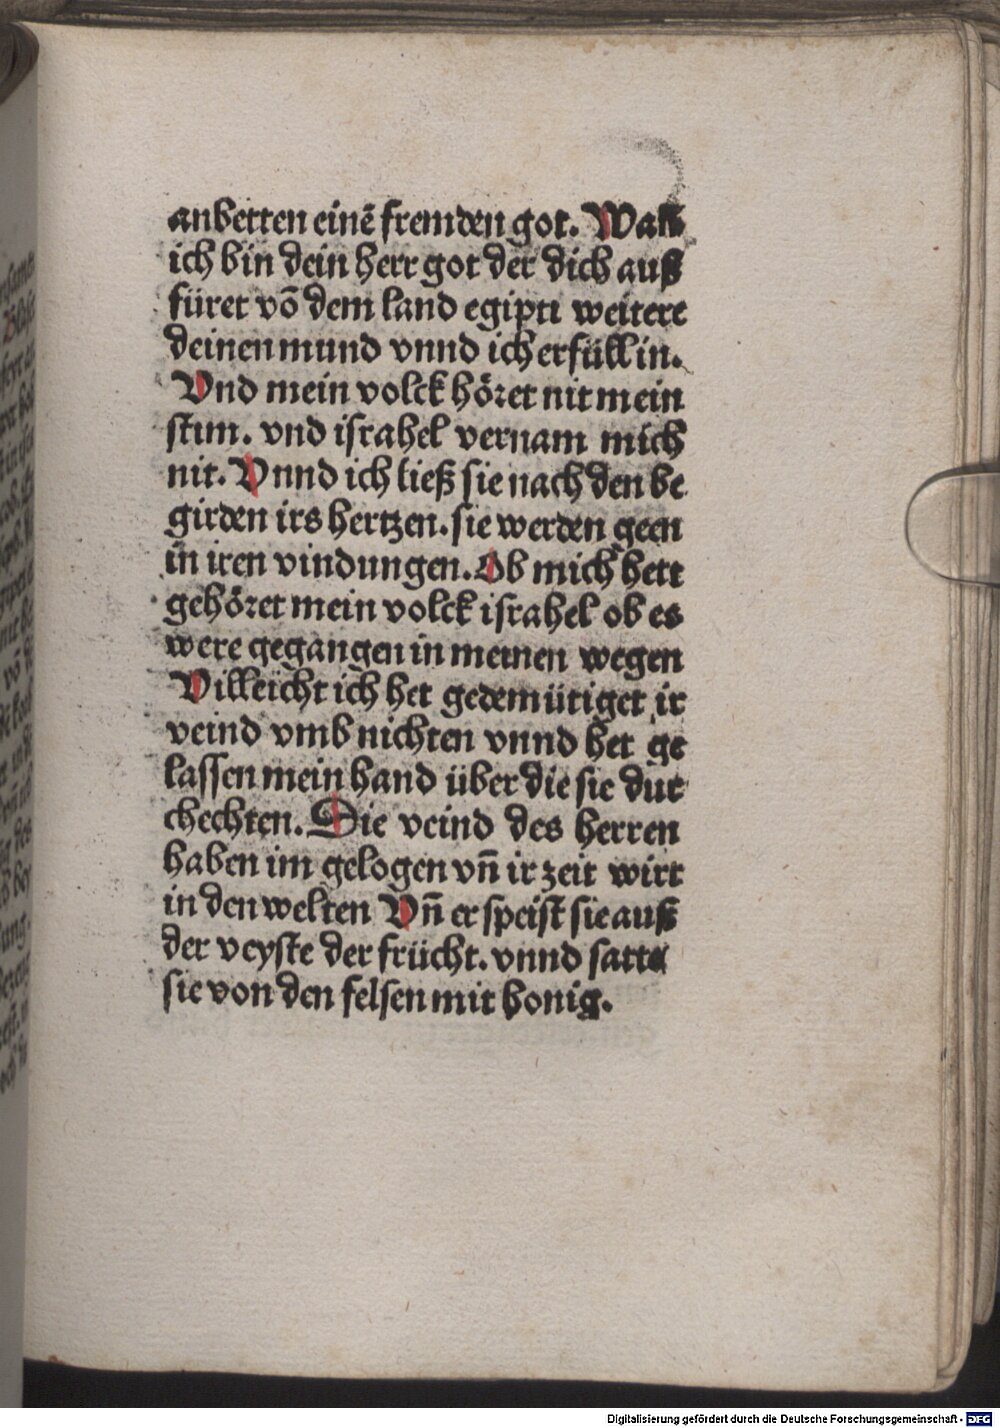 anbetten einē fremden got. Wan
ich bin dein herr got der dich auß
füret vō dem land egipti weitere
deinen mund vnnd ich erfüll in.
Vnd mein volck höret nit mein
stim. vnd israhel vernam mich
nit. Vnnd ich ließ sie nach den be
girden irs hertzen. sie werden geen
in iren vindungen. Ob mich hett
gehöret mein volck israhel ob es
were gegangen in meinen wegen
Villeicht ich het gedemütiget ir
veind vmb nichten vnnd het ge
lassen mein hand über die sie dut
chechten. Die veind des herren
haben im gelogen vn̄ ir zeit wirt
in den welten Vn̄ er speist sie auß
der veyste der frücht. vnnd satte
sie von den felsen mit honig.
Digitalisierung gefördert durch die Deutsche Forschungsgemeinschaft - DFG